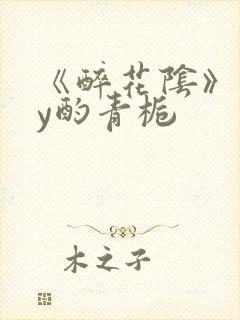 《醉花陰》
y酌青梔
木之子